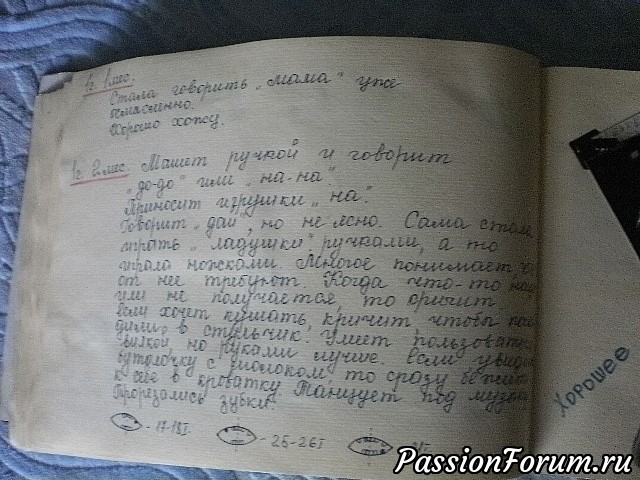 1г. 1 мес.
Стала говорить „мама" уже
осмысленно.
Хорошо хожу.
1г. 2 мес. Машет ручкой и говорит
„до-до" или „на-на".
Приносит игрушки „на".
Говорит „дай", но не ясно. Сама стала
играть „ладушки" ручками, а то
играла ножками. Многое понимает
от нее требуют. Когда что-то
или не получается, то орет
если хочет кушать, кричит, чтобы
в стульчик. Умеет пользоват
вилкой, но руками лучше. Если увидит
бутолочку с молоком, то сразу бежит
к себе в кроватку. Танцует под музы
Прорезались зубки:
- 17-18I - 25-26I
Хорошее
PassionForum.ru